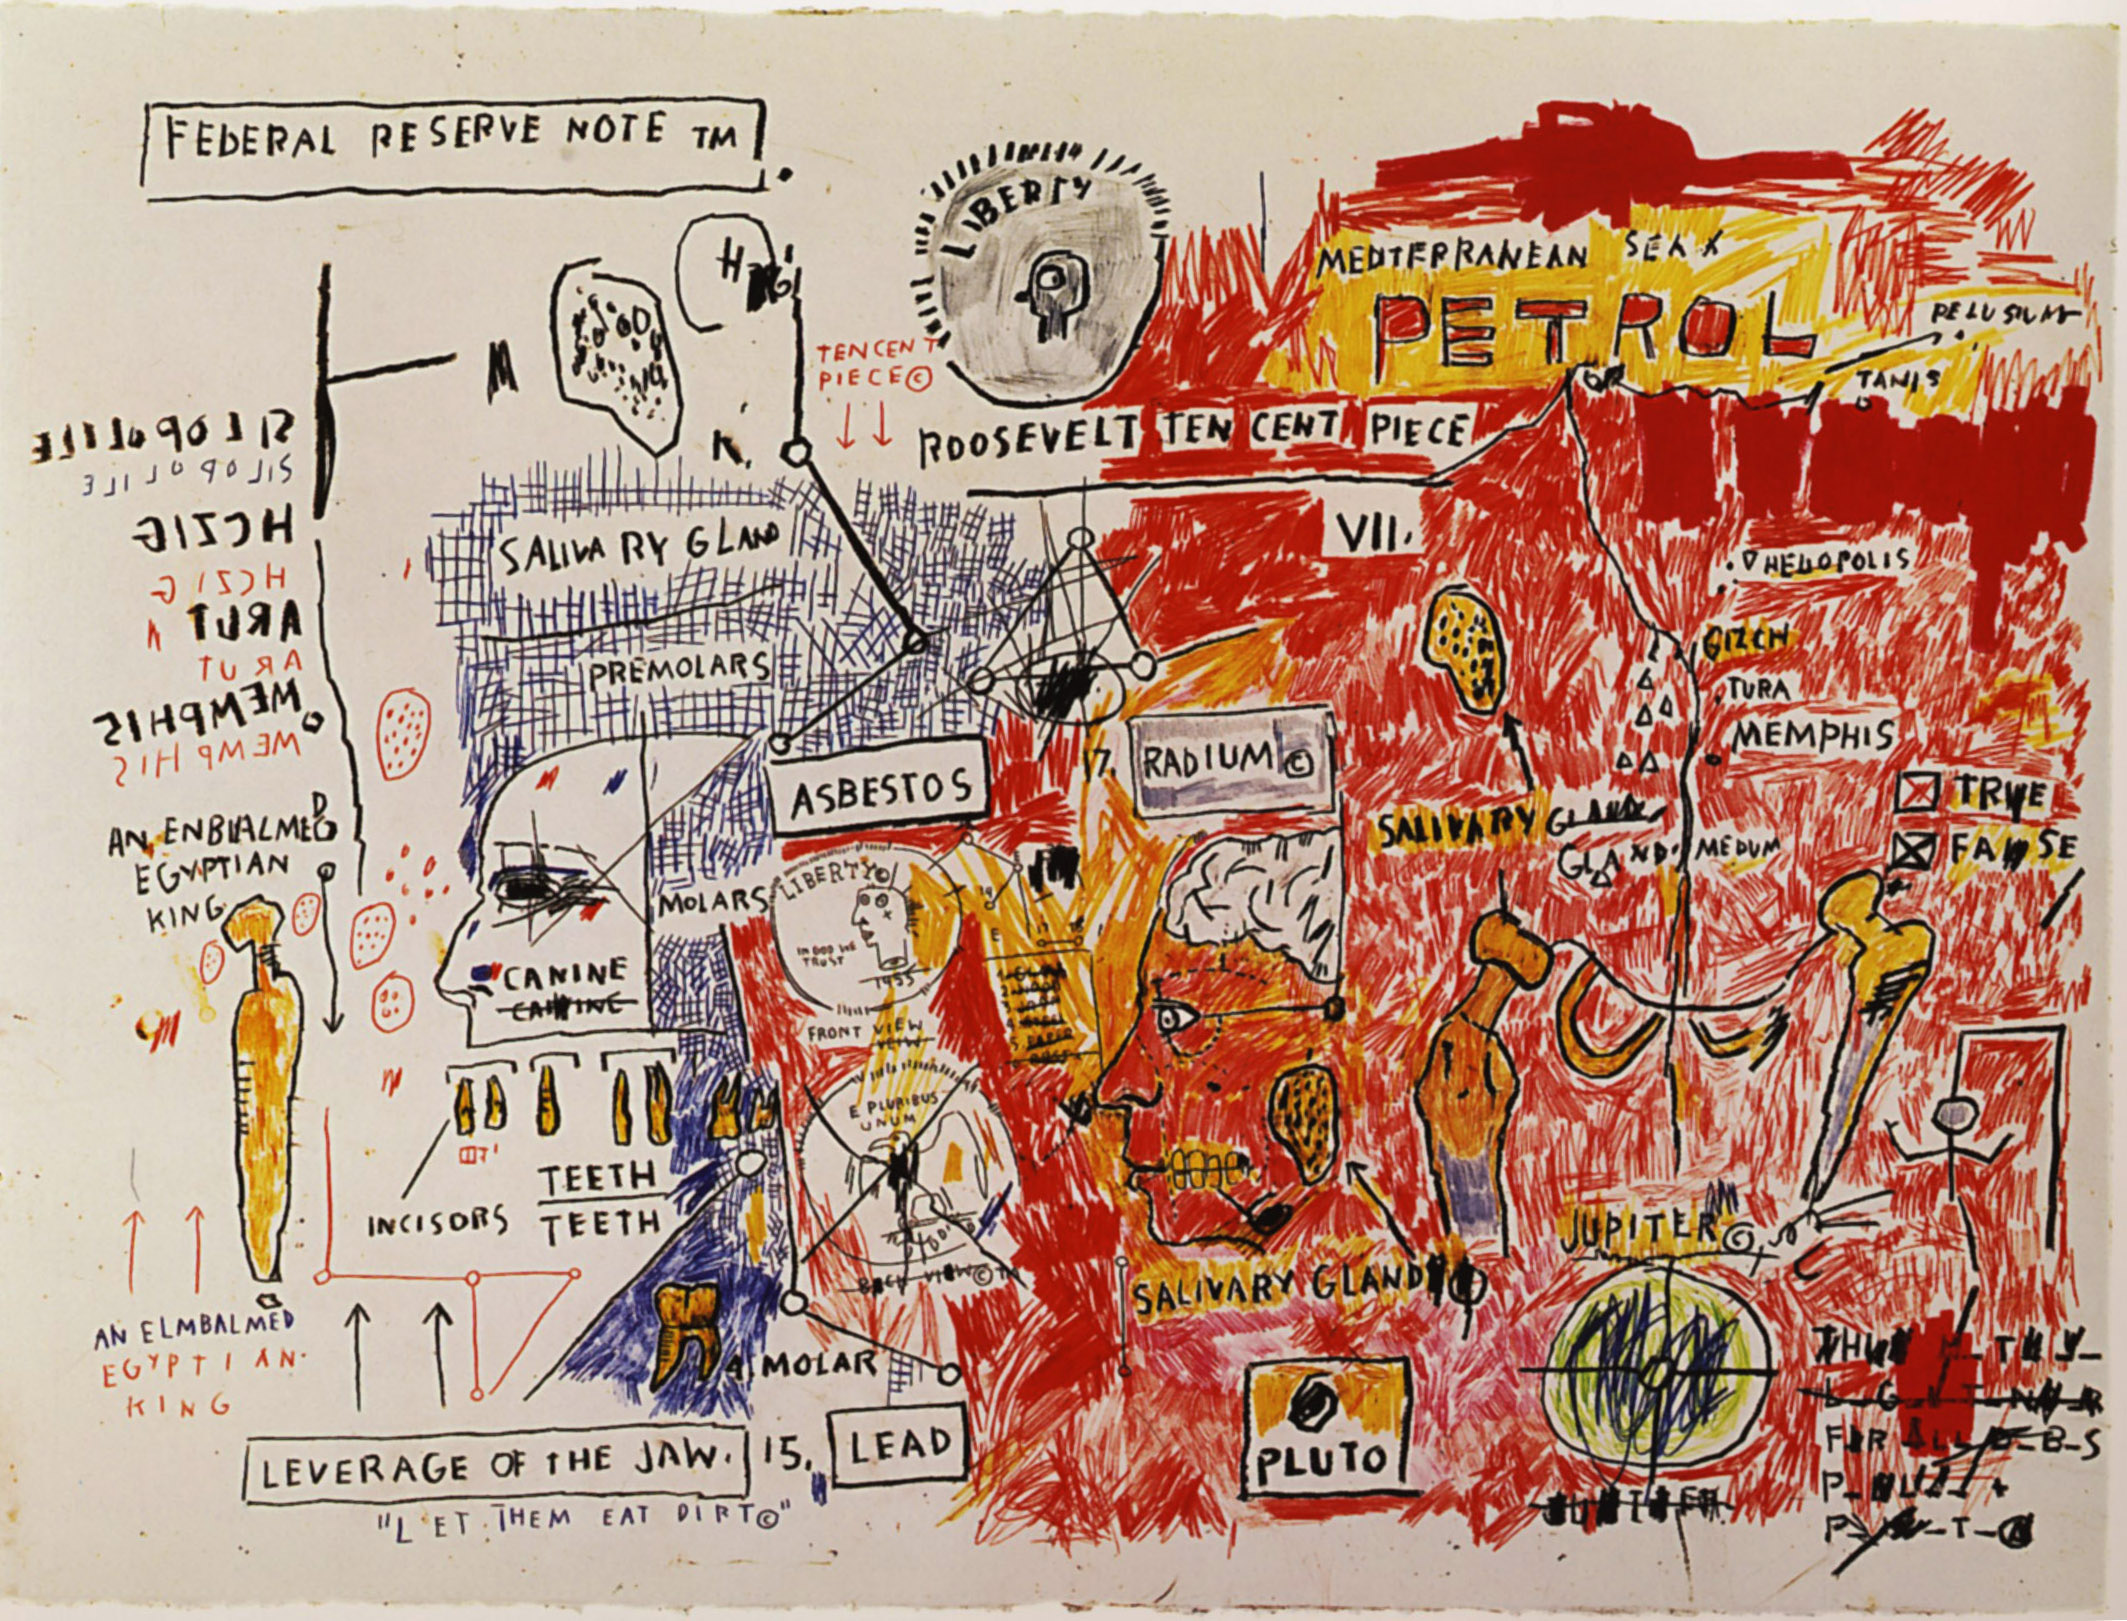 FEDERAL RESERVE NOTE TM.
LIBERTY
MEDITERRANEAN SEA
PETROL
PELUSIUM
TANIS
TEN CENT
PIECE©
ROOSEVELT TEN CENT PIECE
M
K.
VII.
SALIVARY GLAND
PREMOLARS
HELIOPOLIS
GIZEH
TURA
MEMPHIS
ARUT
ARUT
MEMPHIS
MEMPHIS
ASBESTOS
17. RADIUM ©
SALIVARY GLAND
GLAND.
MEDUM
TRUE
FALSE
AN ENBLALMED
EGYPTIAN
KING
MOLARS
LIBERTY©
IN GOD WE
TRUST
1955
FRONT VIEW
VIEW
CANINE
CANINE
E PLURIBUS
UNUM
BACK VIEW© TM
INCISORS
TEETH
TEETH
AN ELMBALMED
EGYPTIAN.
KING
SALIVARY GLAND
JUPITER©
4. MOLAR
PLUTO
JUPITER.
LEVERAGE OF THE JAW. 15. LEAD
"LET THEM EAT DIRT©"